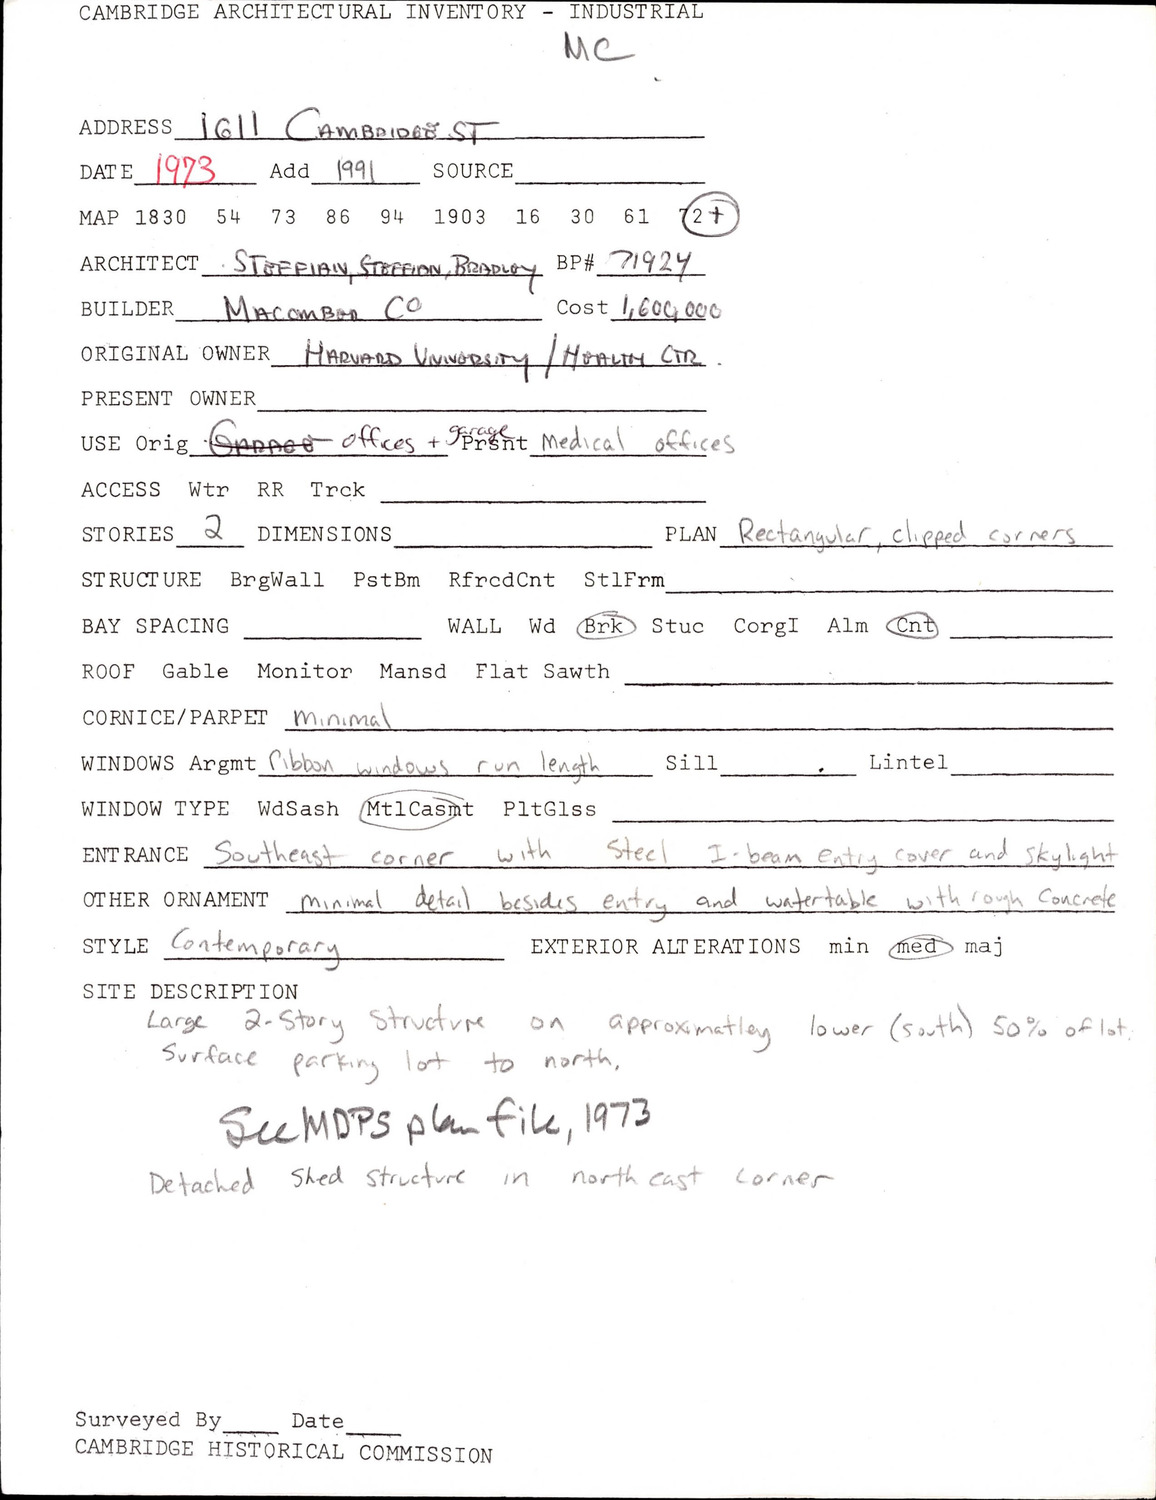 CAMBRIDGE ARCHITECTURAL INVENTORY - INDUSTRIAL
MC
ADDRESS 1611 CAMBRIDGE ST
DATE 1973 Add 1991 SOURCE
MAP 1830 54 73 86 94 1903 16 30 61 72+
ARCHITECT STEFFIAN, STEFFIAN, BRADLEY BP# 71924
BUILDER MACOMBER CO Cost 1,600,000
ORIGINAL OWNER HARVARD UNIVERSITY / HEALTH CTR.
PRESENT OWNER
USE Orig GARAGE offices + garage Prsnt Medical offices
ACCESS Wtr RR Trck
STORIES 2 DIMENSIONS PLAN Rectangular, clipped corners
STRUCTURE BrgWall PstBm RfrcdCnt StlFrm
BAY SPACING WALL Wd Brk Stuc CorgI Alm Cnt
ROOF Gable Monitor Mansd Flat Sawth
CORNICE/PARPET minimal
WINDOWS Argmt Ribbon windows run length Sill Lintel
WINDOW TYPE WdSash MtlCasmt PltGlss
ENTRANCE Southeast corner with Steel I-beam entry cover and skylight
OTHER ORNAMENT minimal detail besides entry and watertable with rough Concrete
STYLE Contemporary EXTERIOR ALTERATIONS min med maj
SITE DESCRIPTION
Large 2-Story Structure on approximatley lower (south) 50% of lot.
Surface parking lot to north.
See MDPS plan file, 1973
Detached Shed structure in northeast corner
Surveyed By Date
CAMBRIDGE HISTORICAL COMMISSION